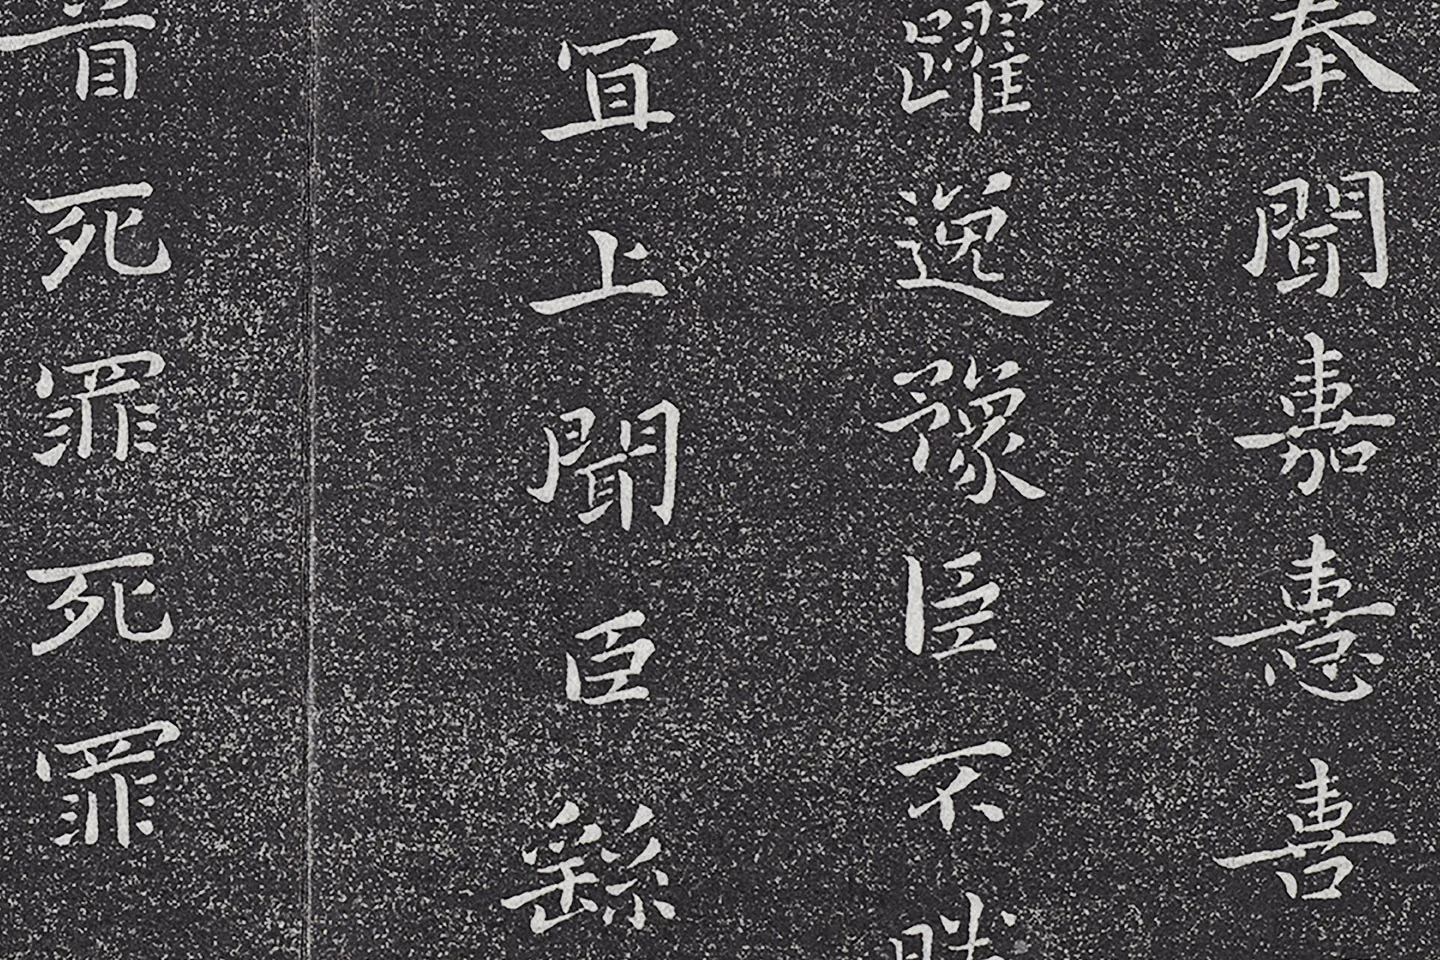 奉聞嘉憙喜
躍逸豫臣不勝
冝上聞臣繇
首死罪死罪